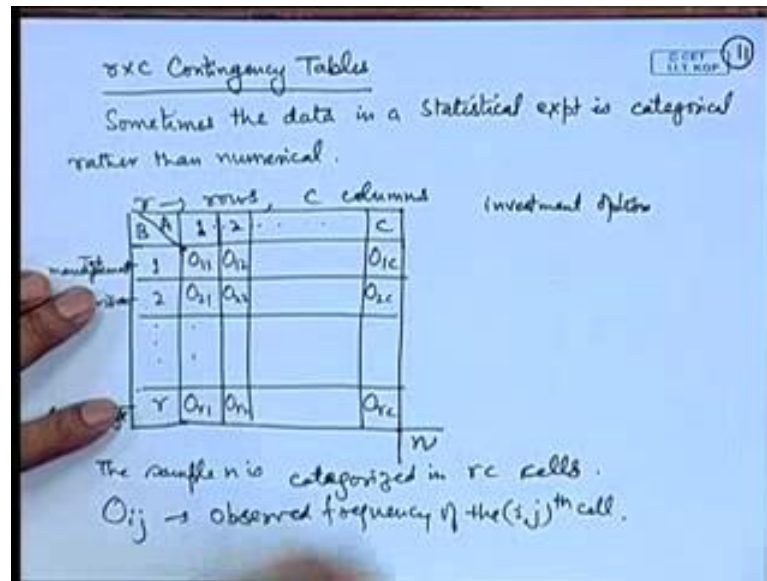 r×c Contingency Tables
© CET
I.I.T. KGP
11
Sometimes the data in a statistical expt is categorical
rather than numerical.
r → rows, C columns
investment options
B A 1 2 . . . . C
management 1 O11 O12 O1c
2 O21 O22 O2c
r Or1 Or2 Orc
n
The sample n is categorized in rc cells.
Oij → observed frequency of the (i,j)th cell.